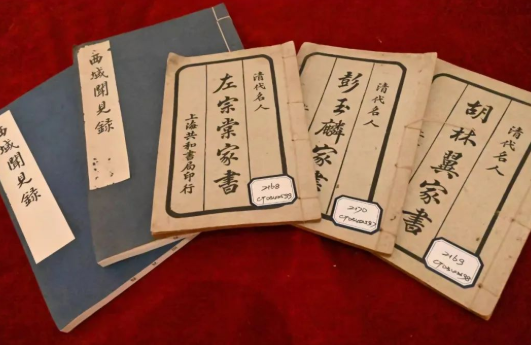 西域聞見录
西域聞見录
清代名人
左宗棠家書
上海共和書局印行
2168
清代名人
彭玉麟家書
2170
清代名人
胡林翼家書
2169